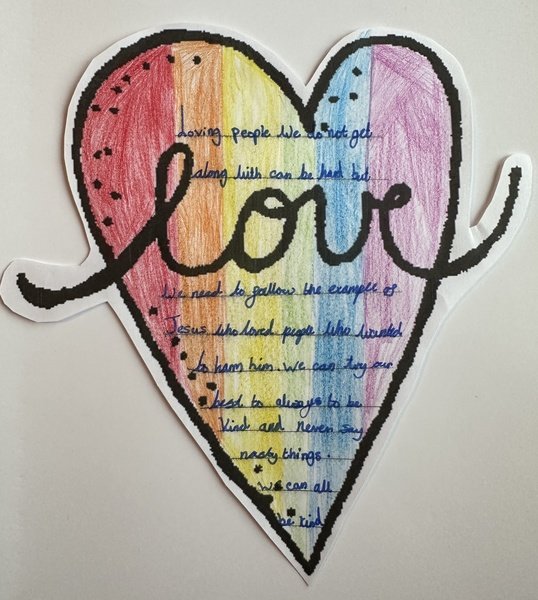 Loving people we do not get
along with can be hard but
love
we need to follow the example of
Jesus who loved people who wanted
to harm him. We can try our
best to always to be
kind and never say
nasty things.
we can all
be kind